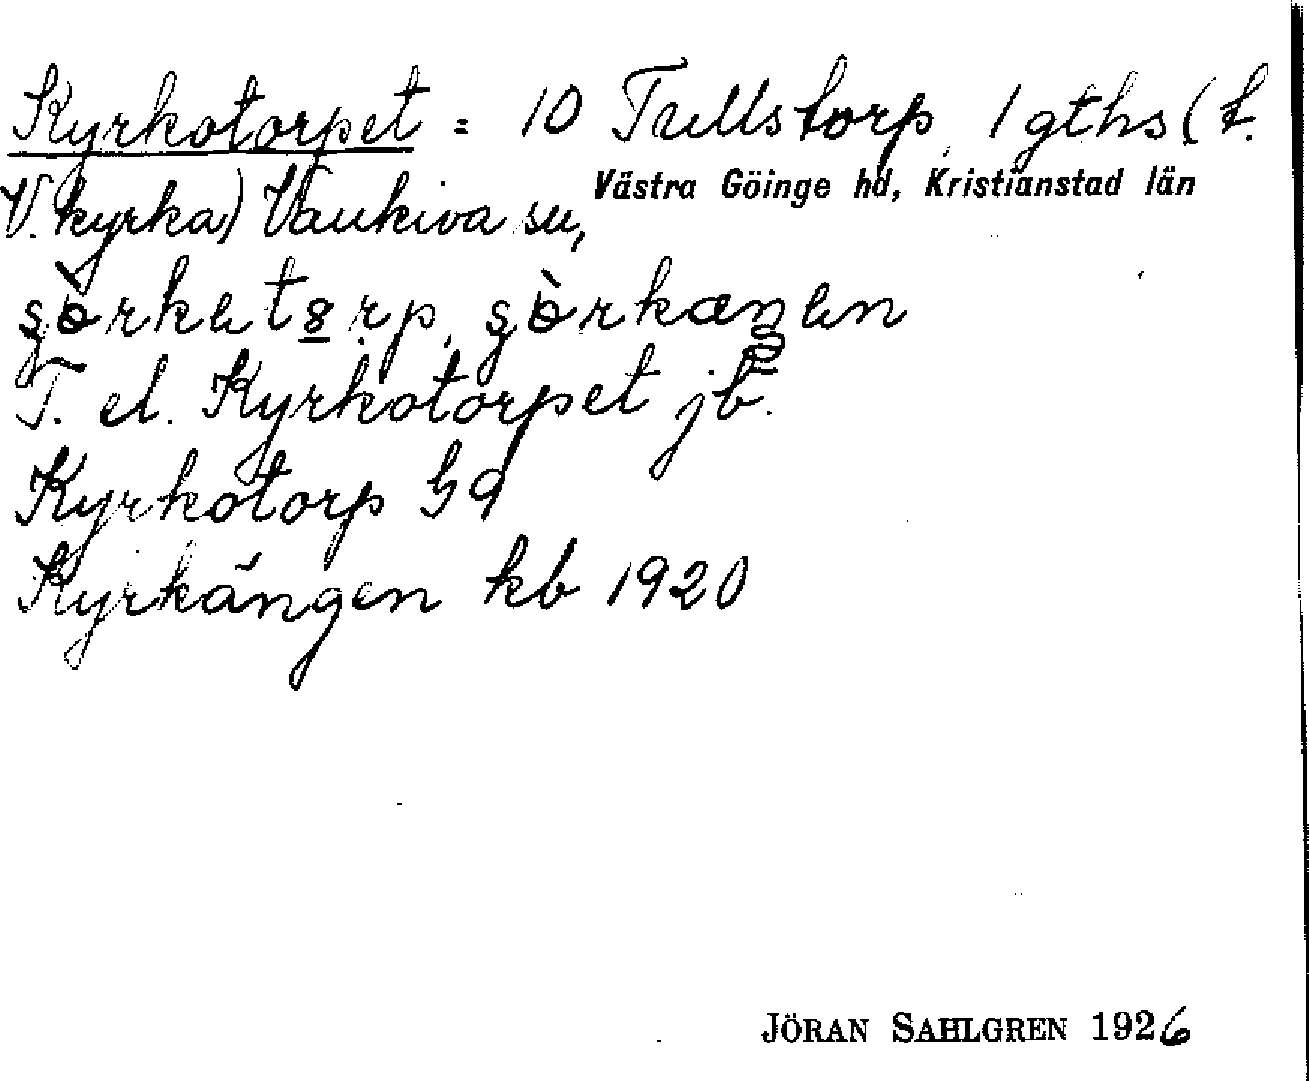 Kyrkotorpet = 10 Tullstorp, 1 gths (t.
V. kyrka) Vankiva sn, Västra Göinge hd, Kristianstad län
T. el. Kyrkotorpet jb.
Kyrkotorp G9
Kyrkängen kb 1920
JÖRAN SAHLGREN 1926